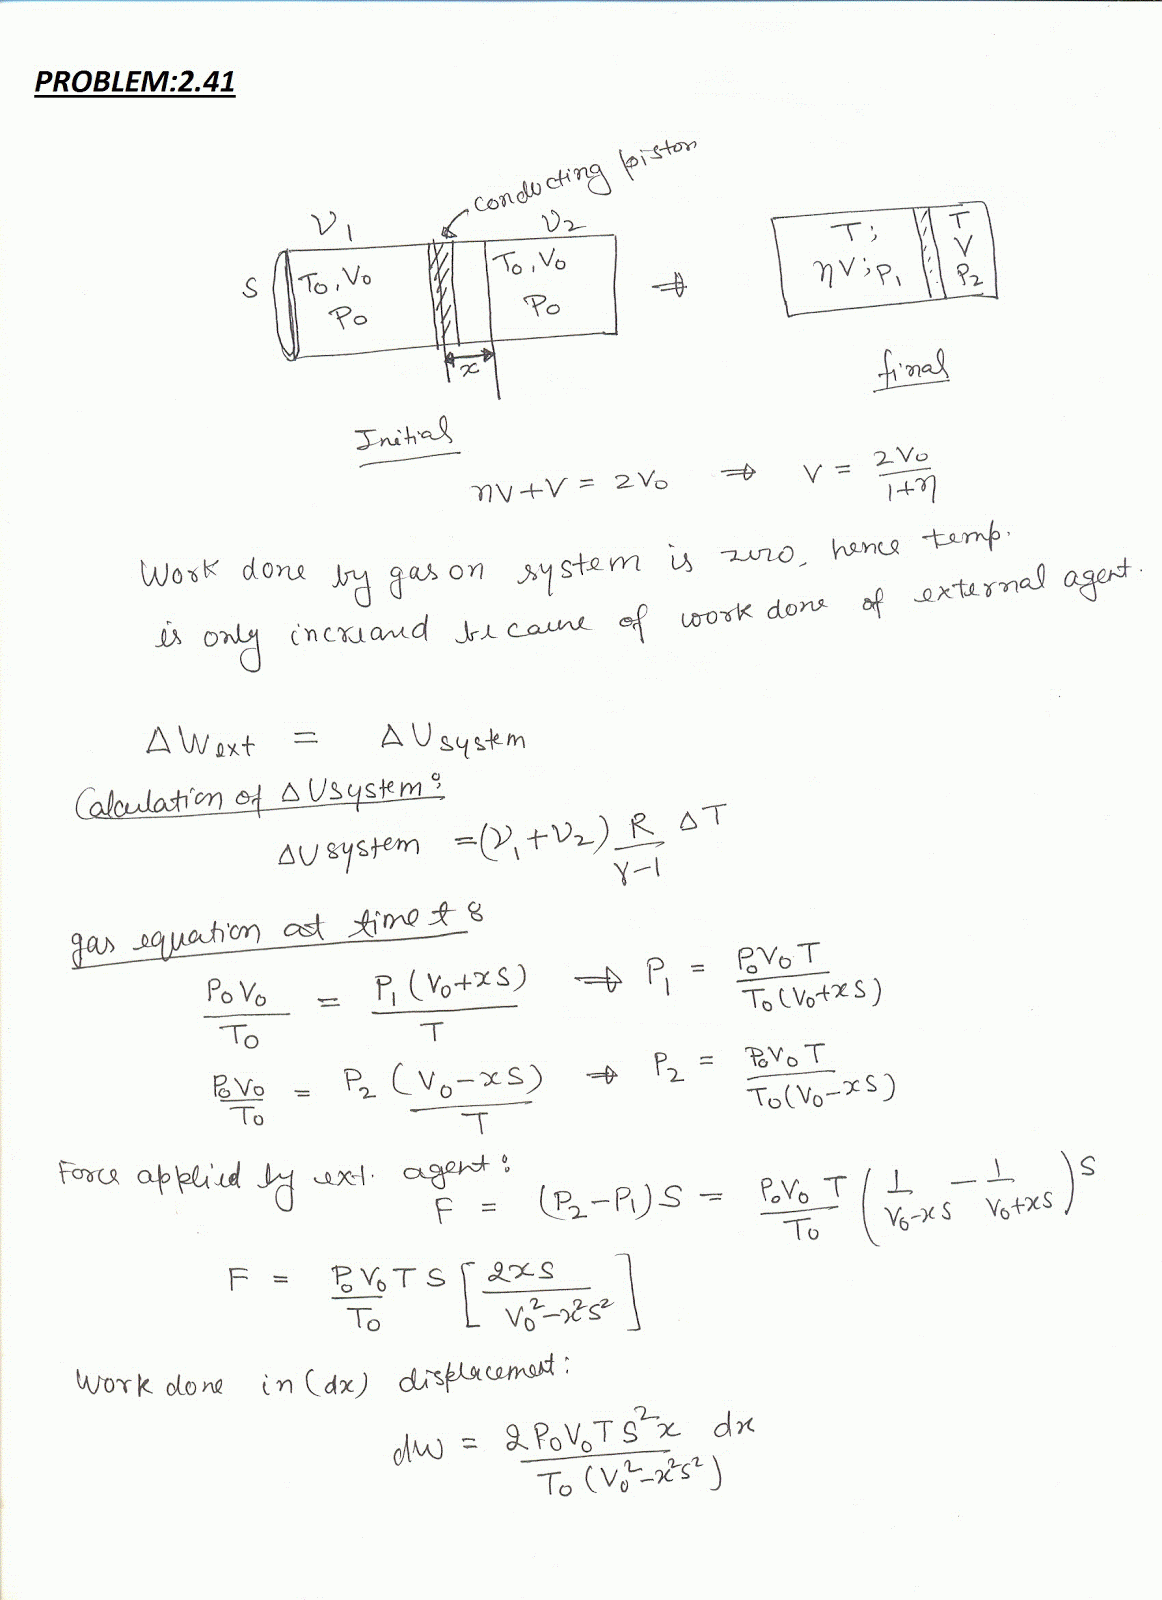 PROBLEM:2.41
conducting piston
ν₁ ν₂
S T₀, V₀ T₀, V₀ ⇒ T; T
P₀ P₀ ηV; P₁ V
P₂
x
final
Initial
ηV + V = 2V₀ ⇒ V = 2V₀/(1+η)
Work done by gas on system is zero, hence temp.
is only increased because of work done of external agent.
ΔWext = ΔUsystem
Calculation of ΔUsystem:
ΔUsystem = (ν₁+ν₂) R/(γ-1) ΔT
gas equation at time t:
P₀V₀/T₀ = P₁(V₀+xS)/T ⇒ P₁ = P₀V₀T/(T₀(V₀+xS))
P₀V₀/T₀ = P₂(V₀-xS)/T ⇒ P₂ = P₀V₀T/(T₀(V₀-xS))
Force applied by ext. agent:
F = (P₂-P₁)S = P₀V₀T/T₀ (1/(V₀-xS) - 1/(V₀+xS)) S
F = P₀V₀TS/T₀ [2xS/(V₀²-x²S²)]
Work done in (dx) displacement:
dw = 2P₀V₀TS²x dx/(T₀(V₀²-x²S²))